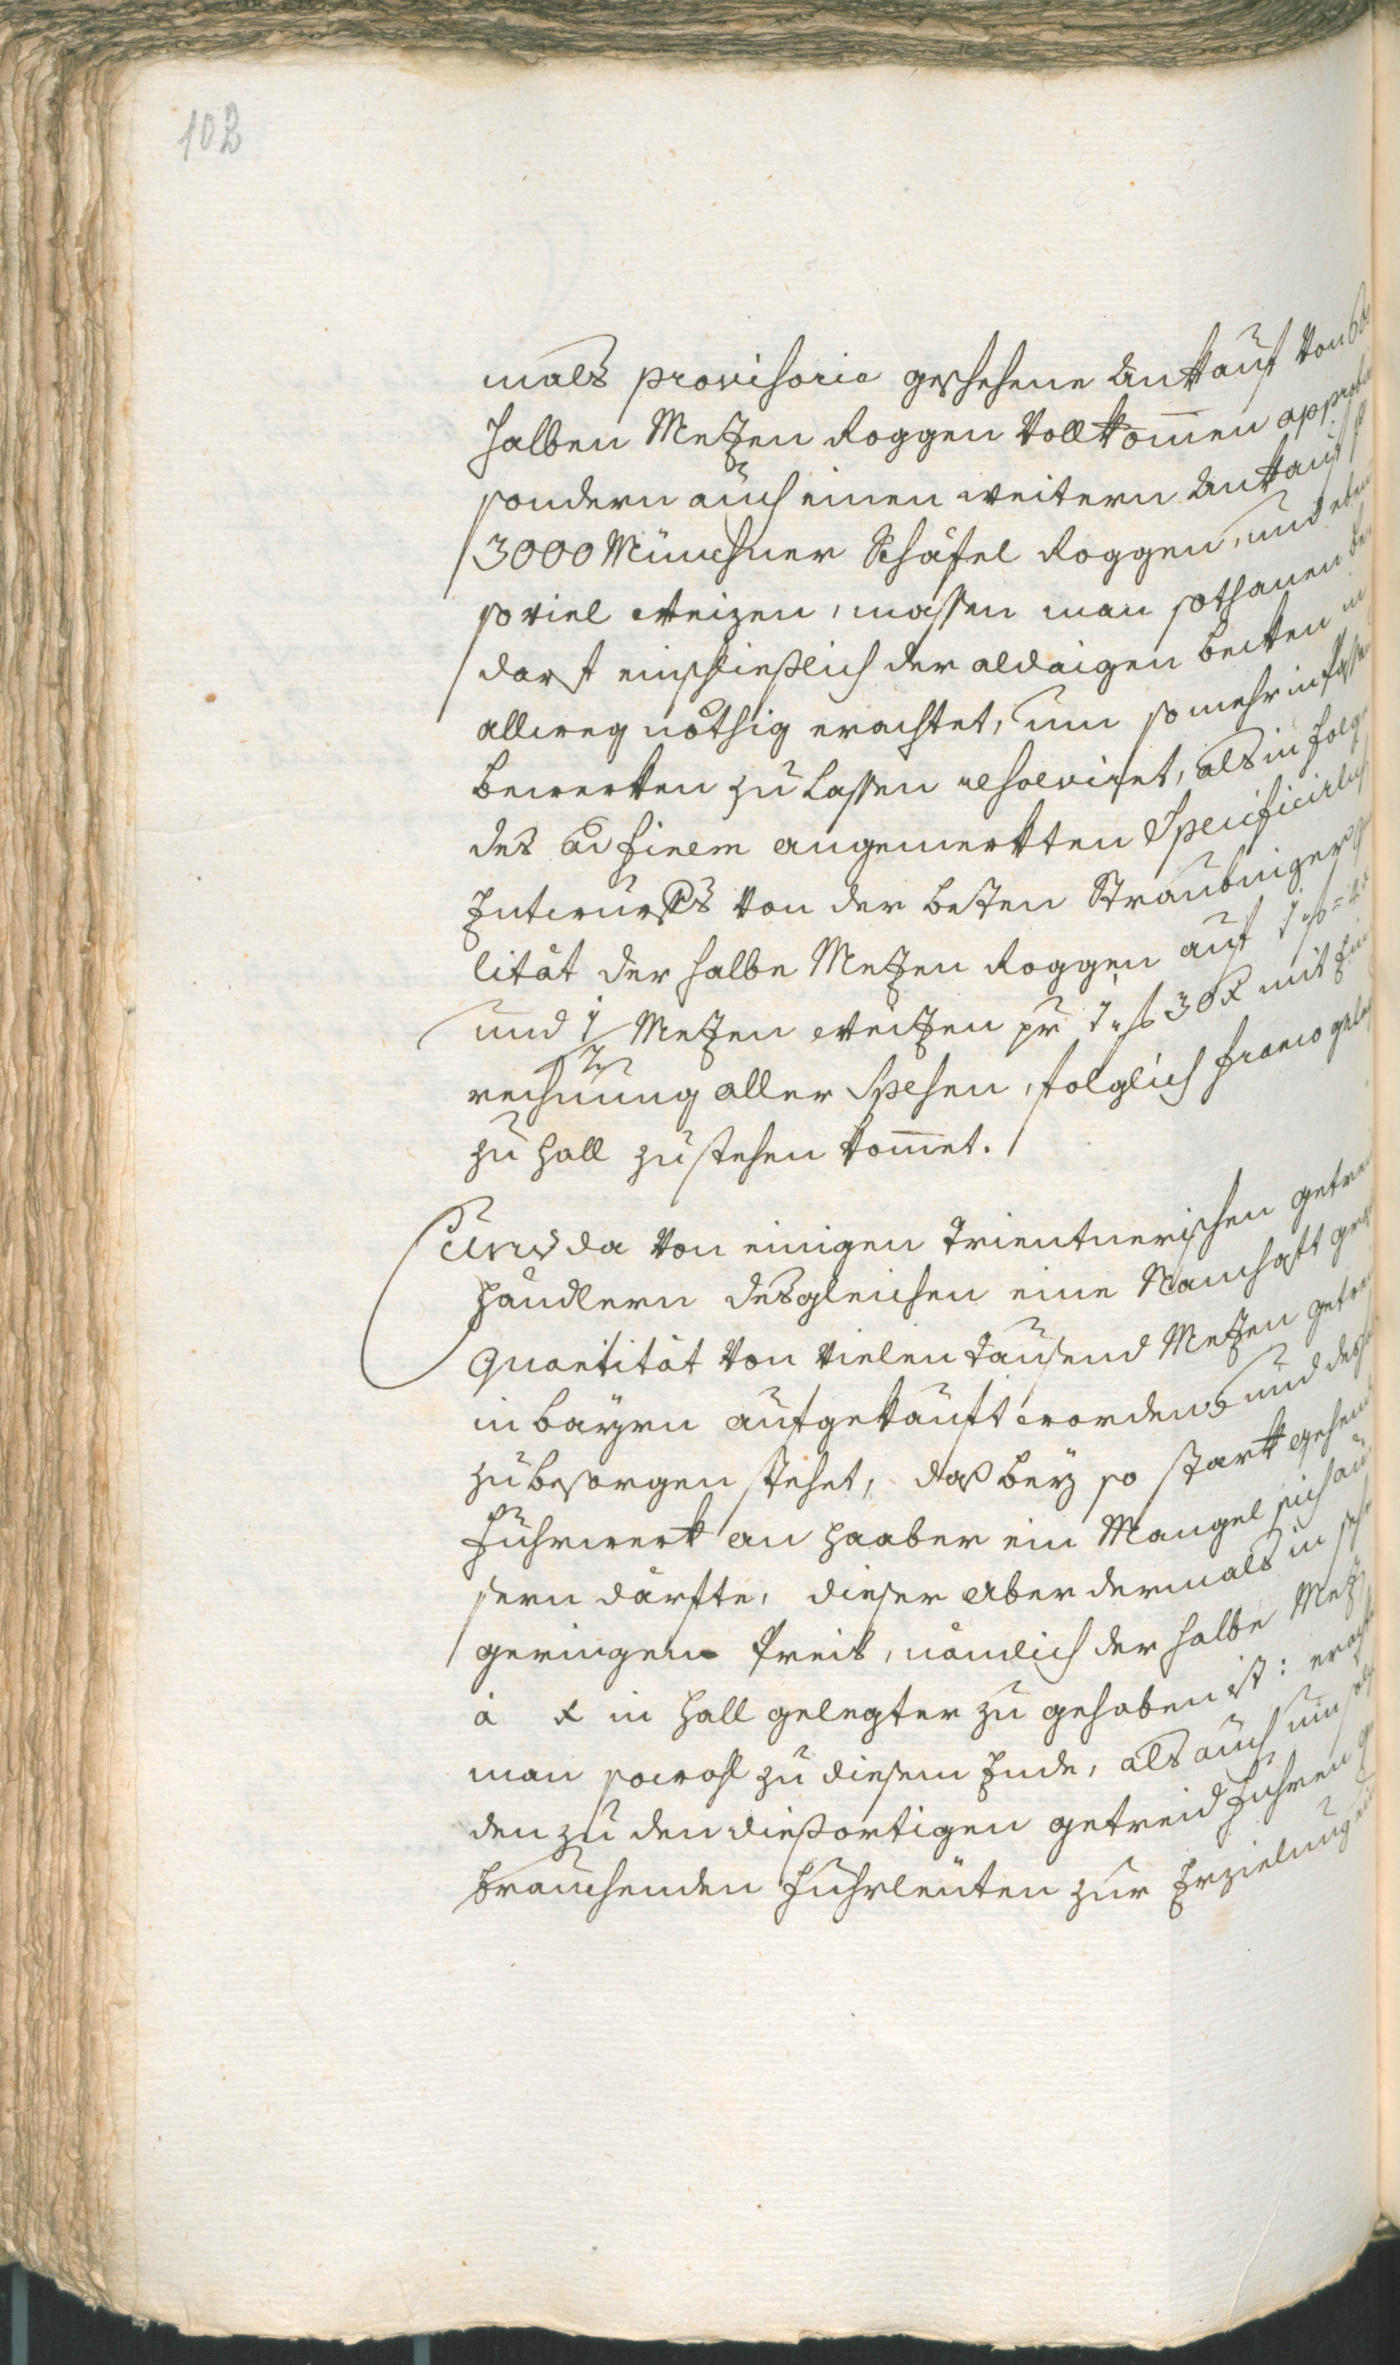 102
mals provisorie geschehene Ankauf von
halben Metzen Roggen vollkom̄en approbi
sondern auch einen weitern Ankauf
3000 Münchner Schäfel Roggen, und eben
so viel Weizen, massen man sothanen be
darf einschließlich der aldaigen becken
allweg nöthig erachtet, um so mehr in
bewerken zu lassen resolviret, als in folge
des ad finem angemerkten Specificirlich
Entwurfs von der besten Straubinger
lität der halbe Metzen Roggen auf 1 f
und ½ Metzen Weitzen pr 1 f 30 x mit Ein
rechnung aller Spesen, folglich franco geleg
zu Hall zustehen kom̄et.
Und da von einigen Trientnerischen getrei
händlern desgleichen eine Namhaft
Quantität von vielen tausend Metzen getrei
in bayrn aufgekauft worden, und
zubesorgen stehet, daß bey so stark gehend
Fuhrwerk an Haaber ein Mangel sich äu
sern därfte, dieser aber dermals in sehr
geringem Preis, nämlich der halbe Metz
à x in Hall gelegter zu gehaben ist: eracht
man sowohl zu diesem Ende, als auch um
den zu den dießortigen getreid Fuhren
brauchenden Fuhrleuten zur Erzielung